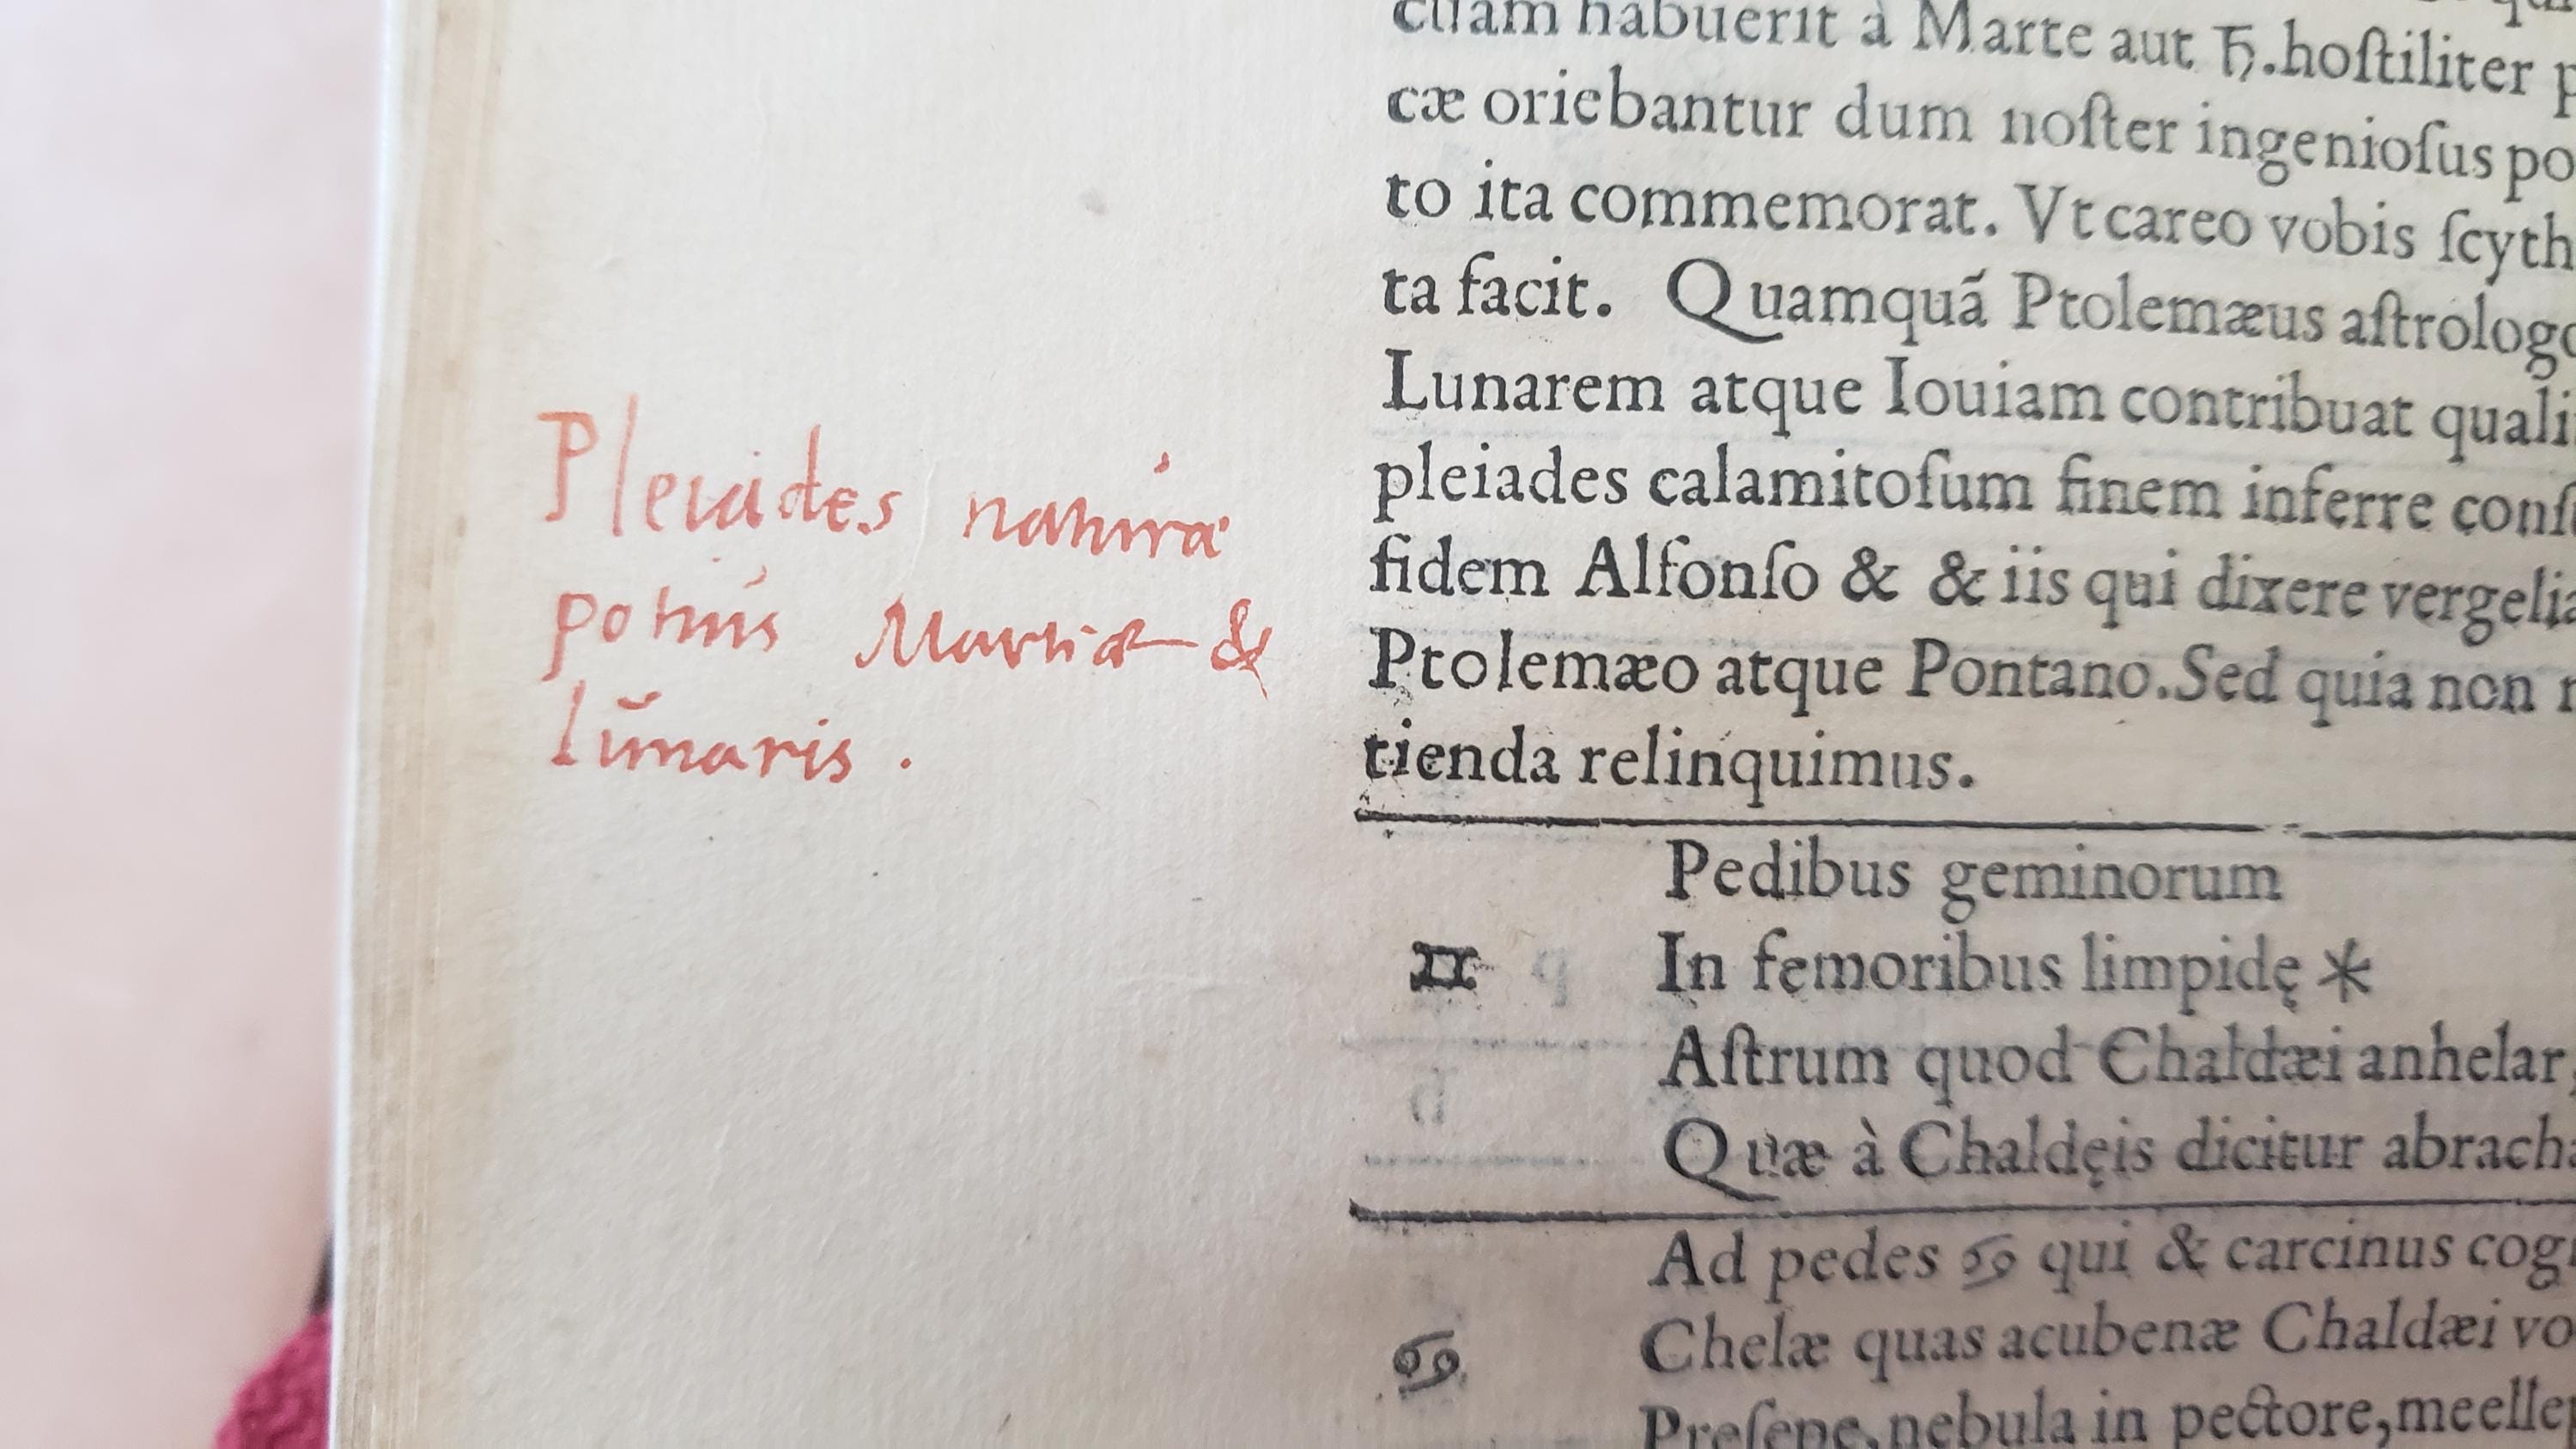 cuam habuerit à Marte aut ♄. hoſtiliter p
cæ oriebantur dum noſter ingenioſus po
to ita commemorat. Vt careo vobis ſcyth
ta facit. Quamquã Ptolemæus aſtrologo
Lunarem atque Iouiam contribuat quali
pleiades calamitoſum finem inferre conſ
fidem Alfonſo & & iis qui dixere vergelia
Ptolemæo atque Pontano. Sed quia non
tienda relinquimus.
Pleiades naturæ
potiùs Martiæ &
lŭnaris.
Pedibus geminorum
♊ In femoribus limpidę *
Aſtrum quod Chaldæi anhelar
Quæ à Chaldęis dicitur abrach
Ad pedes ♋ qui & carcinus cog
♋ Chelæ quas acubenæ Chaldæi vo
Preſepe, nebula in pectore, meelle